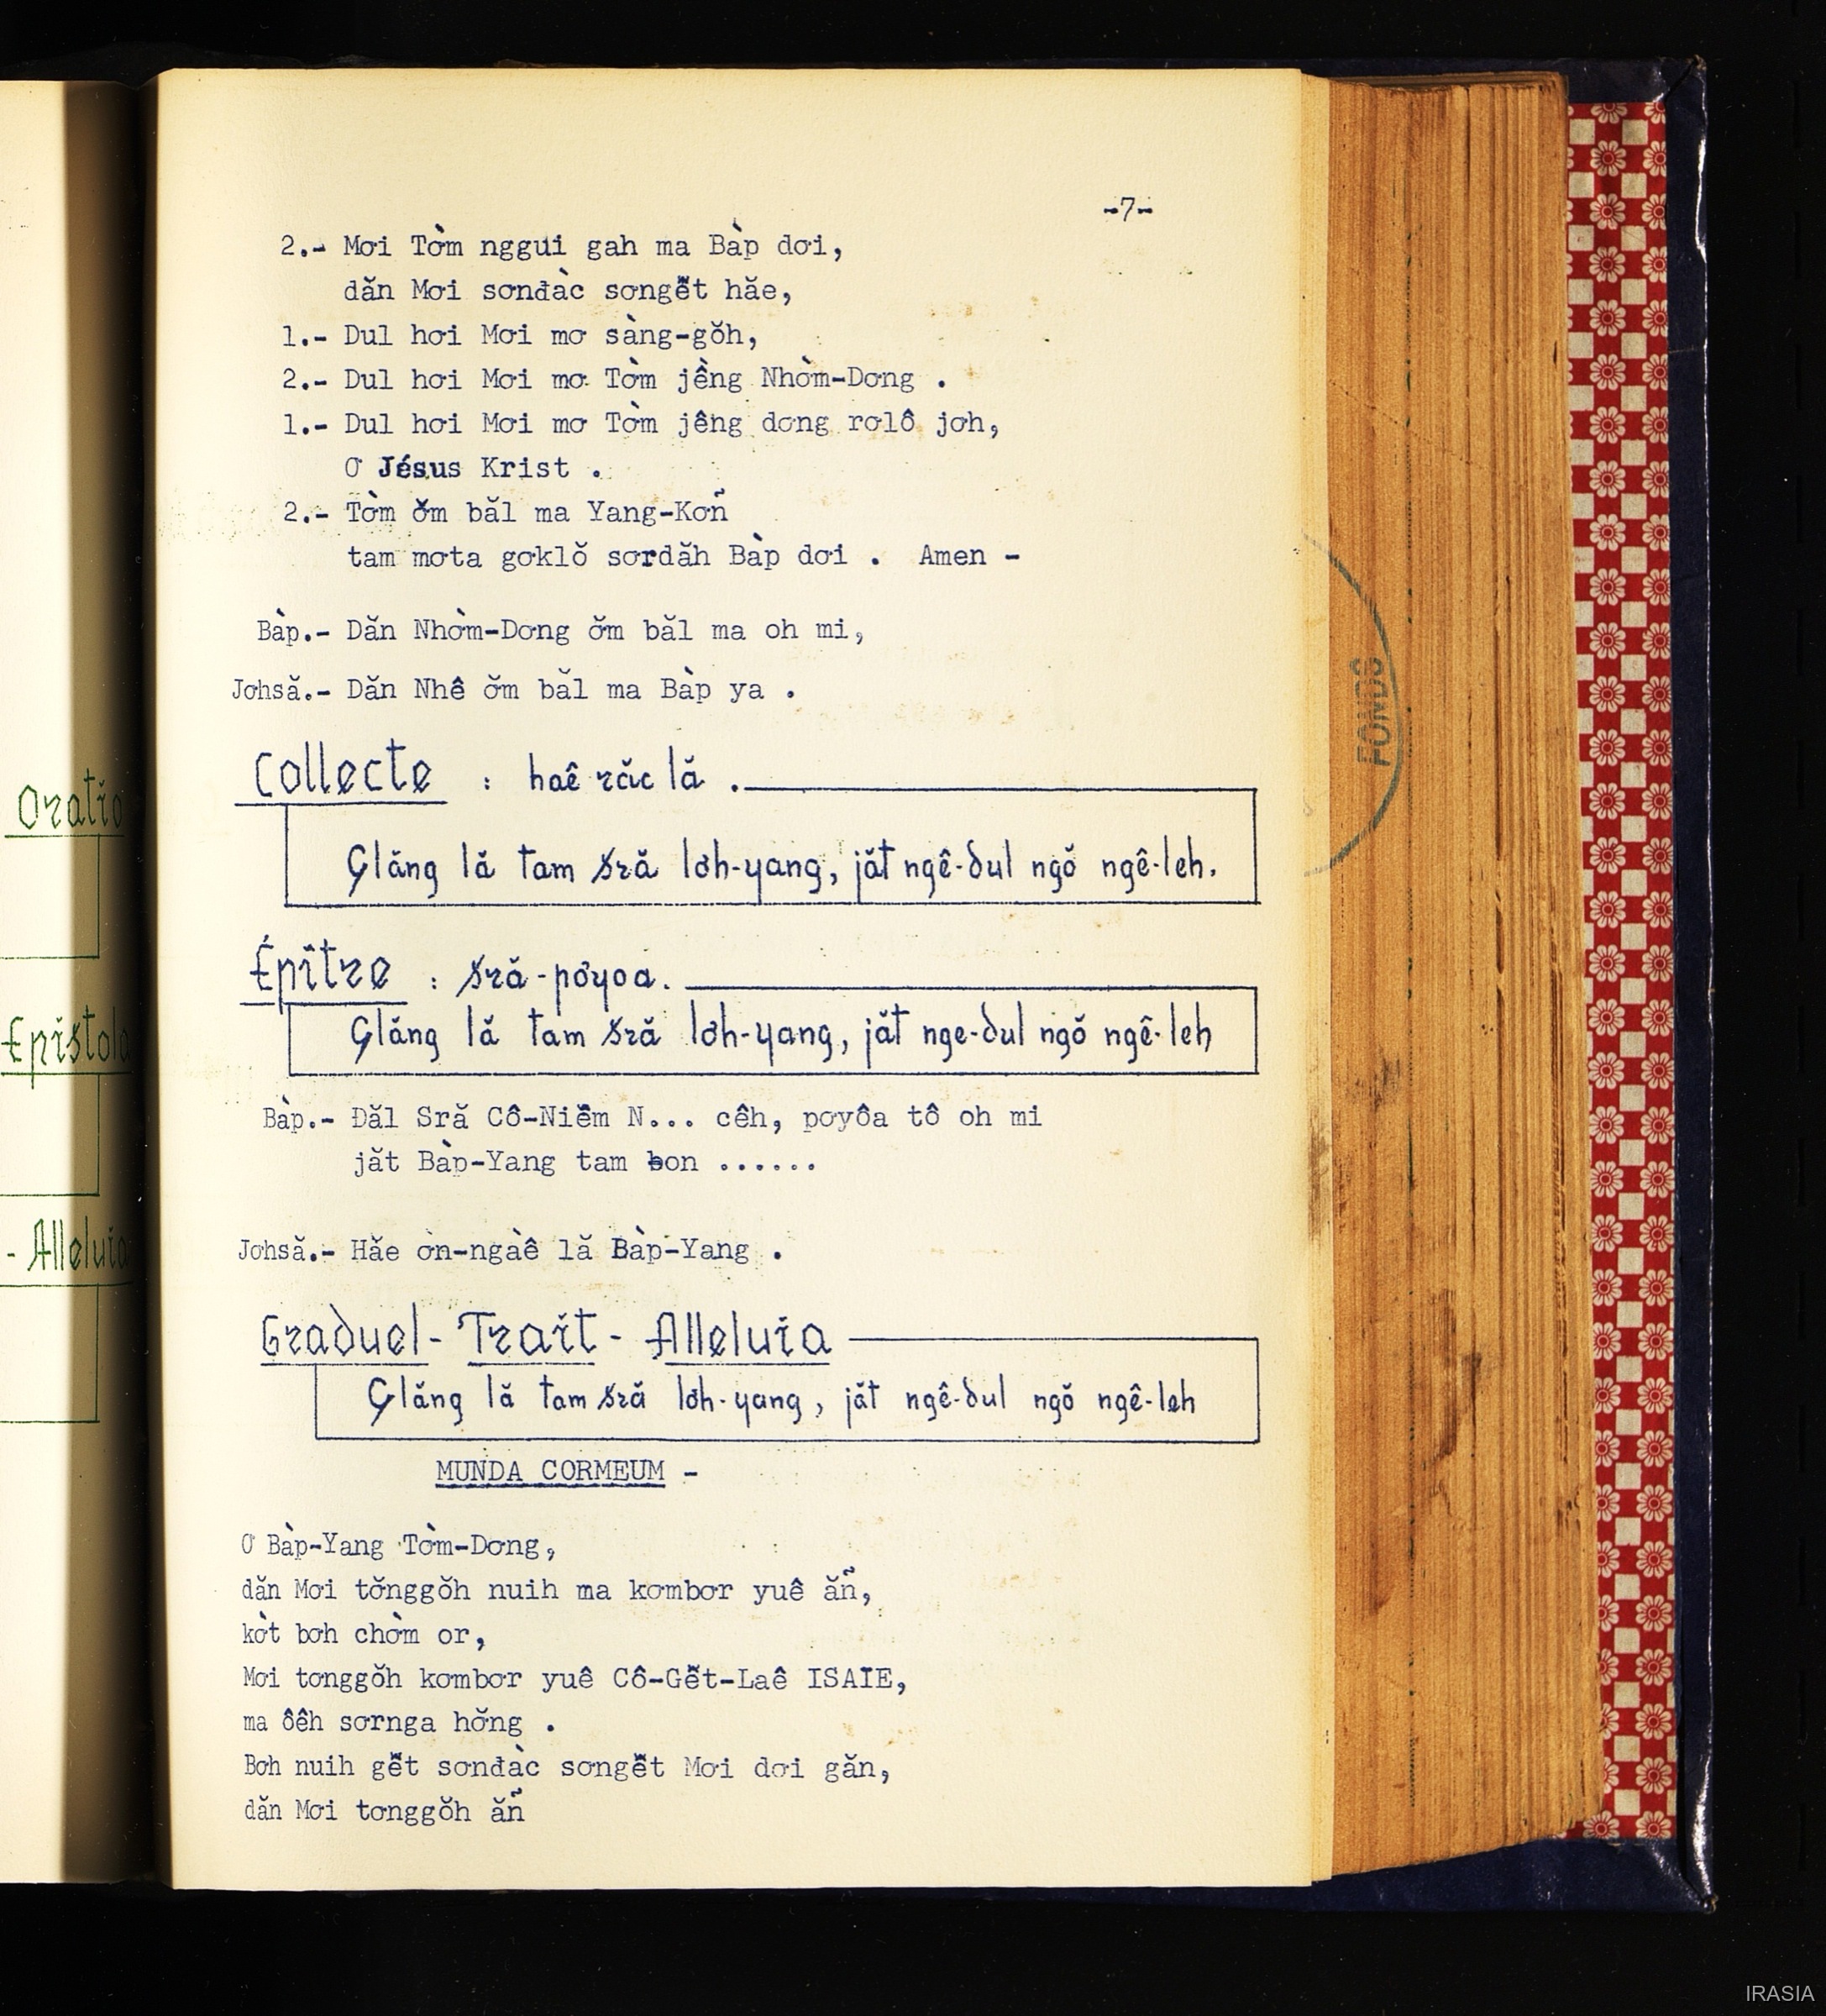 -7-
2.- Mơi Tờm nggui gah ma Bàp dơi,
dăn Mơi sơnđàc sơngĕ̂t hăe,
1.- Dul hơi Mơi mơ sàng-gŏh,
2.- Dul hơi Mơi mơ Tờm jềng Nhờm-Dơng .
1.- Dul hơi Mơi mơ Tờm jêng dơng rơlô jơh,
Ơ Jésus Krist .
2.- Tờm ơ̆m băl ma Yang-Kơñ
tam mơta gơklŏ sơrdăh Bàp dơi . Amen -
Bàp.- Dăn Nhờm-Dơng ơ̆m băl ma oh mi,
Jơhsă.- Dăn Nhê ơ̆m băl ma Bàp ya .
Oratio
Collecte : haê răc lă .
Glăng lă tam sră lơh-yang, jăt ngê-dul ngŏ ngê-leh.
Épître : sră-pơyoa.
Epistola
Glăng lă tam sră lơh-yang, jăt nge-dul ngŏ ngê-leh
Bàp.- Đăl Sră Cô-Niĕ̂m N... cêh, pơyôa tô oh mi
jăt Bàp-Yang tam bon ......
Jơhsă.- Hăe ơn-ngàê lă Bàp-Yang .
- Alleluia
Graduel - Trait - Alleluia
Glăng lă tam sră lơh-yang, jăt ngê-dul ngŏ ngê-leh
MUNDA CORMEUM -
Ơ Bàp-Yang Tờm-Dơng,
dăn Mơi tơ̆nggŏh nuih ma kơmbơr yuê ăñ,
kờt bơh chờm or,
Mơi tơnggŏh kơmbơr yuê Cô-Gĕ̂t-Laê ISAIE,
ma ôêh sơrnga hơ̆ng .
Bơh nuih gĕ̂t sơnđàc sơngĕ̂t Mơi dơi găn,
dăn Mơi tơnggŏh ăñ
FONDS
IRASIA